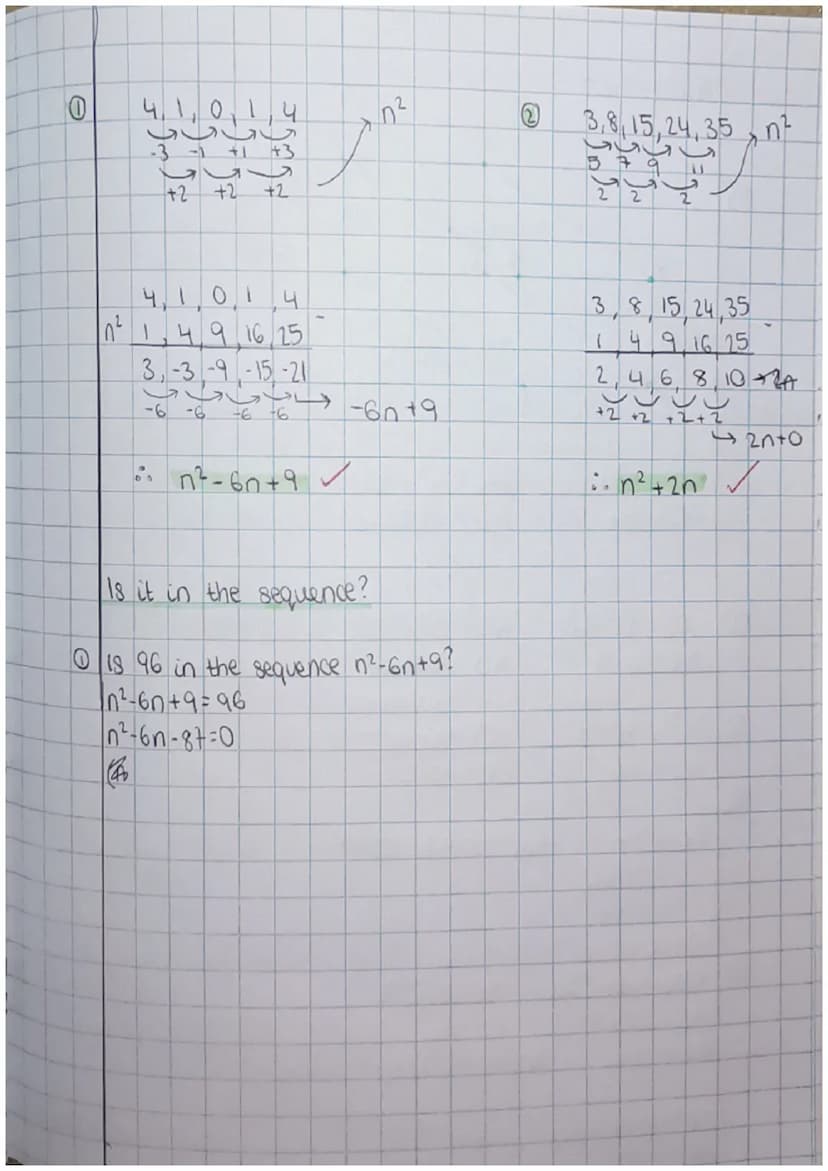 ① 4, 1, 0, 1, 4 n²
-3 -1 +1 +3
+2 +2 +2
4, 1, 0, 1, 4 -
n² 1, 4, 9, 16, 25
3, -3, -9, -15, -21
-6 -6 -6 -6 → -6n +9
∴ n² - 6n + 9 ✓
② 3, 8, 15, 24, 35 n²
5 7 9 11
2 2 2
3, 8, 15, 24, 35 -
1 4 9 16 25
2, 4, 6, 8, 10
+2 +2 +2 +2
↳ 2n+0
∴ n² + 2n ✓
Is it in the sequence?
① Is 96 in the sequence n²-6n+9?
n²-6n+9=96
n²-6n-87=0